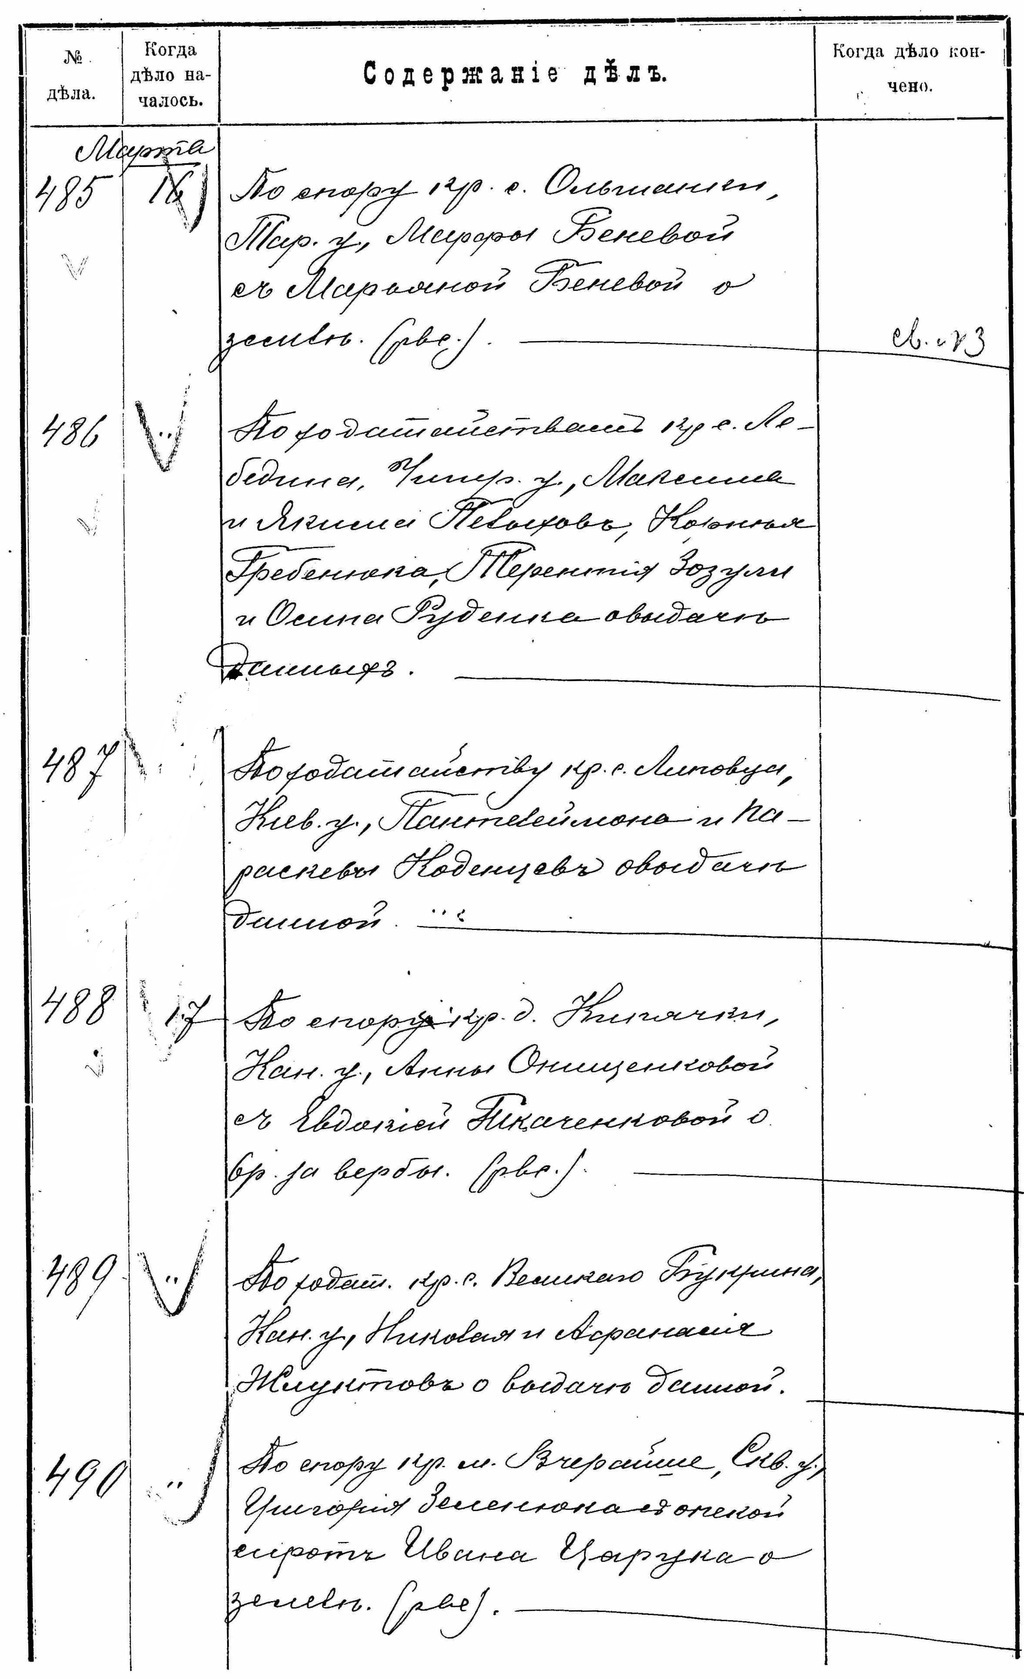 № дѣла.
Когда дѣло началось.
Содержаніе дѣлъ.
Когда дѣло кончено.
Марта
485 16 По спору кр. с. Ольшанки,
Тар. у., Марфы Беневой
съ Марьяной Беневой о
землѣ. (рѣе.).
486 " По ходатайствамъ кр. с. Ле-
бедина, Чигир. у., Максима
и Якима Певыховъ, Корнія
Гребенюка, Терентія Зозули
и Осипа Руденка о выдачѣ
данныхъ.
487 По ходатайству кр. с. Липовца,
Кіев. у., Пантелеймона и Па-
раскевы Коденцевъ о выдачѣ
данной.
488 17 По спору кр. д. Кипячки,
Кан. у., Анны Онищенковой
съ Евдокіей Ткаченковой о
вр. за вербы.
489 " По ходат. кр. с. Великаго Букрина,
Кан. у., Николая и Афанасія
Жлуктовъ о выдачѣ данной.
490 " По спору кр. м. Вчерайше, Скв. у.,
Григорія Зеленюка съ опекой
сиротъ Ивана Царука о
землѣ.